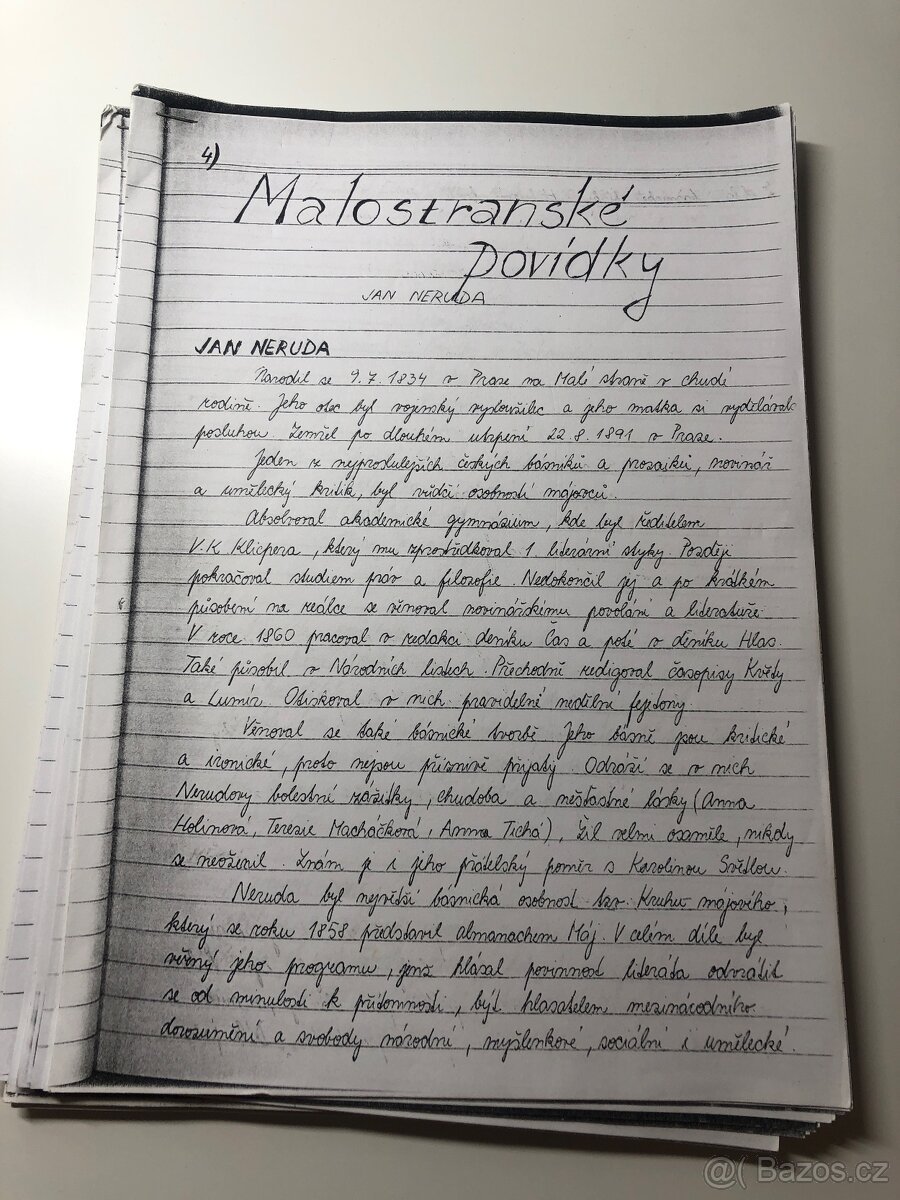 4)
Malostranské
povídky
JAN NERUDA
JAN NERUDA
Narodil se 9.7.1834 v Praze na Malé straně v chudé
rodině. Jeho otec byl vojenský vysloužilec a jeho matka si vydělávala
posluhou. Zemřel po dlouhém utrpení 22.8.1891 v Praze.
Jeden z nejproslulejších českých básníků a prozaiků, novinář
a umělecký kritik, byl vůdčí osobností májovců.
Absolvoval akademické gymnázium, kde byl ředitelem
V.K Klicpera, který mu zprostředkoval 1. literární styky. Později
pokračoval studiem práv a filozofie. Nedokončil jej a po krátkém
působení na reálce se věnoval novinářskému povolání a literatuře.
V roce 1860 pracoval v redakci deníku Čas a poté v deníku Hlas.
Také působil v Národních listech. Přechodně redigoval časopisy Květy
a Lumír. Otiskoval v nich pravidelné nedělní fejetony.
Věnoval se také básnické tvorbě. Jeho básně jsou kritické
a ironické, proto nejsou příznivě přijaty. Odráží se v nich
Nerudovy bolestné zážitky, chudoba a nešťastné lásky (Anna
Holinová, Terezie Macháčková, Anna Tichá), Žil velmi osaměle, nikdy
se neoženil. Znám je i jeho přátelský poměr s Karolinou Světlou.
Neruda byl největší básnická osobnost tzv. Kruhu májového,
který se roku 1858 představil almanachem Máj. V celém díle byl
věrný jeho programu, jenž hlásal povinnost literáta odvrátit
se od minulosti k přítomnosti, být hlasatelem mezinárodního
dorozumění a svobody národní, myšlenkové, sociální i umělecké.
@( Bazos.cz